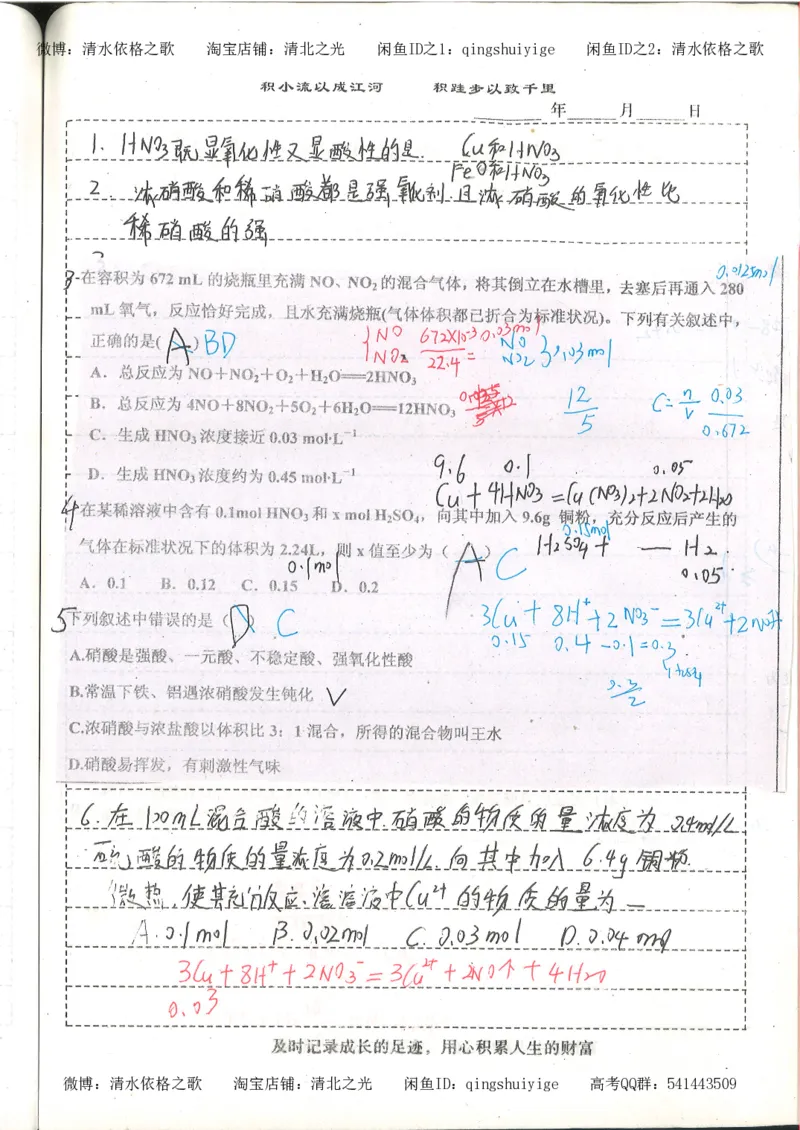 微博：清水依格之歌 淘宝店铺：清北之光 闲鱼ID之1：qingshuiyige 闲鱼ID之2：清水依格之歌
积小流以成江河 积跬步以致千里
年 月 日
1. HNO3既显氧化性又显酸性的是 Cu和HNO3
FeO和HNO3
2. 浓硝酸和稀硝酸都是强氧化剂且浓硝酸的氧化性比
稀硝酸的强
0.0125mol
3.在容积为 672 mL 的烧瓶里充满 NO、NO₂的混合气体，将其倒立在水槽里，去塞后再通入 280
mL 氧气，反应恰好完成，且水充满烧瓶(气体体积都已折合为标准状况)。下列有关叙述中，
正确的是( A ) BD
{NO NO₂ 672×10⁻³/22.4 = 0.03mol NO NO₂ } 0.03mol
A．总反应为 NO＋NO₂＋O₂＋H₂O══2HNO₃
B．总反应为 4NO＋8NO₂＋5O₂＋6H₂O══12HNO₃
12/5 C=n/V 0.03/0.672
C．生成 HNO₃浓度接近 0.03 mol·L⁻¹
D．生成 HNO₃浓度约为 0.45 mol·L⁻¹
9.6 0.1 0.05
Cu+4HNO3=Cu(NO3)2+2NO2+2H2O
4在某稀溶液中含有 0.1mol HNO₃ 和 x mol H₂SO₄，向其中加入 9.6g 铜粉，充分反应后产生的
0.15mol
气体在标准状况下的体积为 2.24L，则 x 值至少为（ A ） C H2SO4+ — H2
0.1mol 0.05
A．0.1 B．0.12 C．0.15 D．0.2
5下列叙述中错误的是（ D ） C
3Cu+8H⁺+2NO3⁻=3Cu²⁺+2NO↑+
0.15 0.4 -0.1=0.3
A.硝酸是强酸、一元酸、不稳定酸、强氧化性酸
H2SO4
B.常温下铁、铝遇浓硝酸发生钝化 √
0.3/2
C.浓硝酸与浓盐酸以体积比 3：1 混合，所得的混合物叫王水
D.硝酸易挥发，有刺激性气味
6.在100mL混合酸的溶液中.硝酸的物质的量浓度为 0.4mol/L
硫酸的物质的量浓度为0.2mol/L.向其中加入 6.4g铜粉.
微热.使其充分反应.溶液中Cu²⁺的物质的量为—
A.0.1mol B.0.02mol C.0.03mol D.0.04mol
3Cu+8H⁺+2NO3⁻=3Cu²⁺+2NO↑+4H2O
0.03
及时记录成长的足迹，用心积累人生的财富
微博：清水依格之歌 淘宝店铺：清北之光 闲鱼ID：qingshuiyige 高考QQ群：541443509